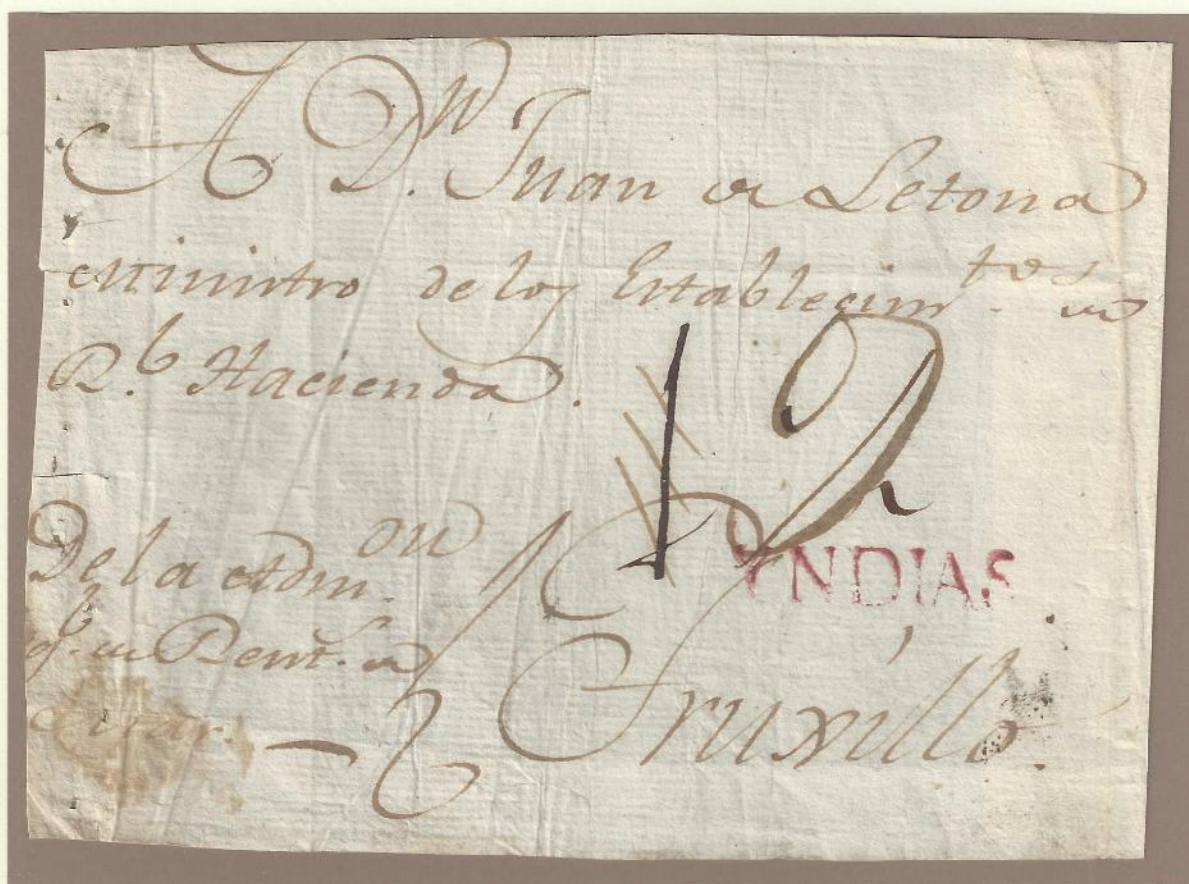 A D.n Juan de Letona
Ministro de los Establecim.tos de
R.l Hacienda.
12
YNDIAS
De la Adm.on
g.l de Rent.s de
Truxillo.